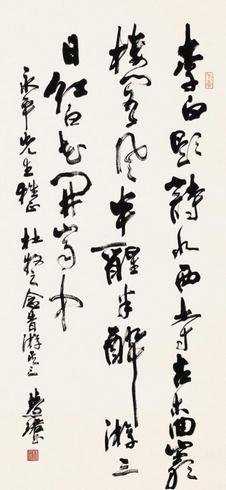 李白題詩水西寺古木回巖
樓閣風半醒半醉游三
日紅白花開山雨中
永平先生雅正 杜牧之念昔游之三